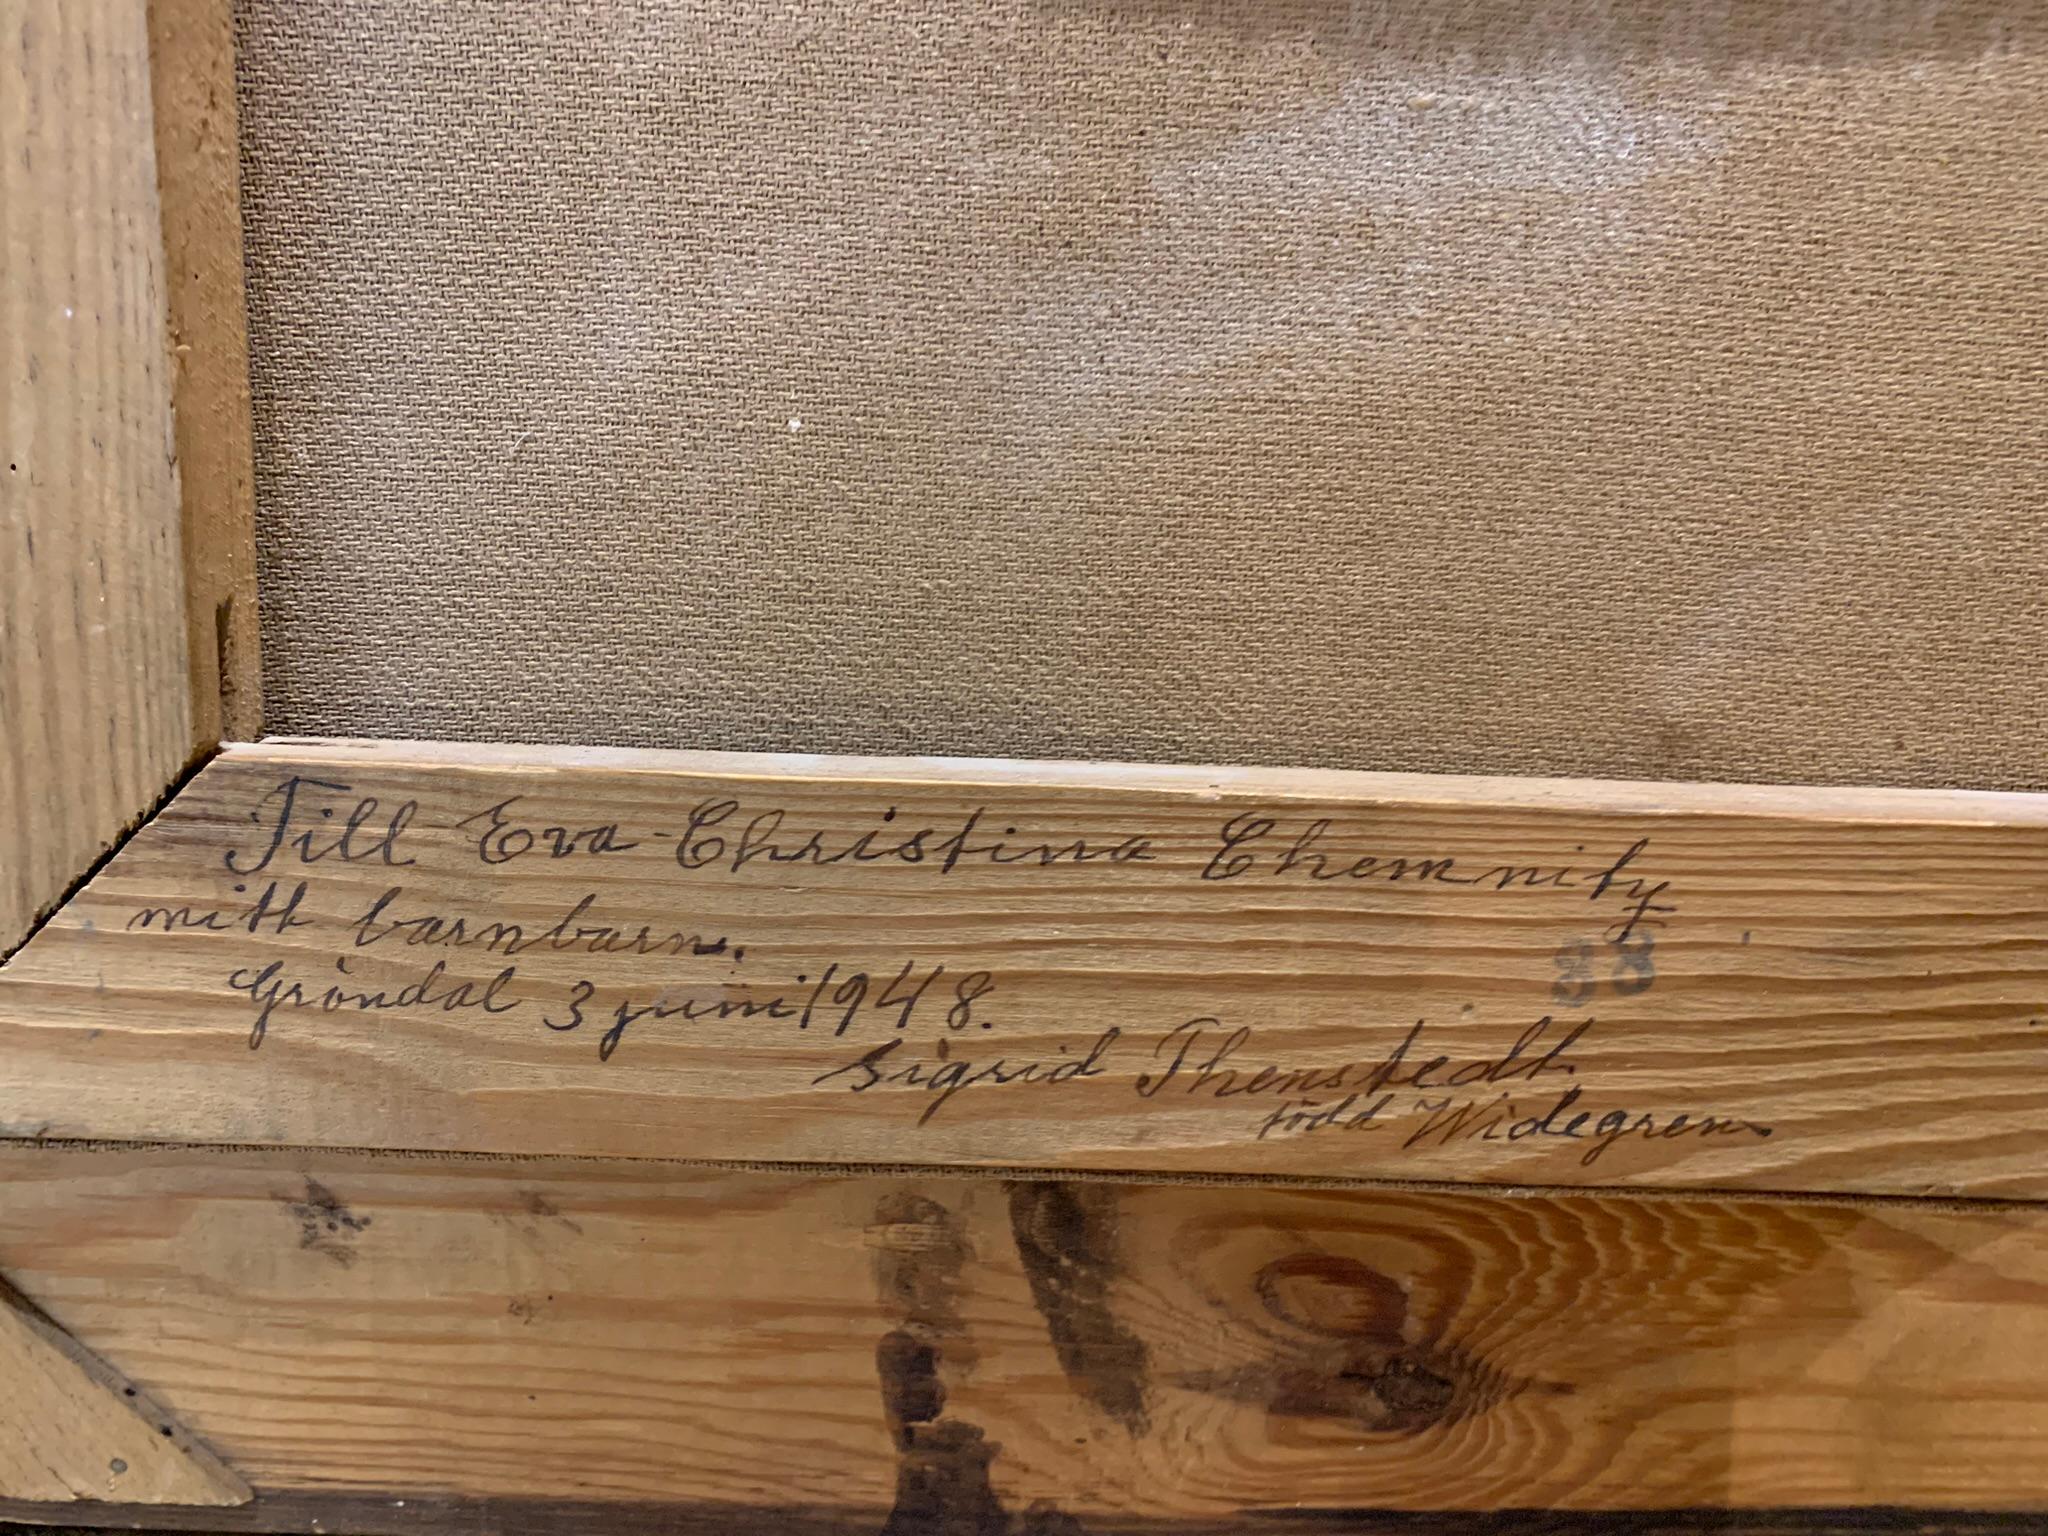 Till Eva-Christina Chemnitz
mitt barnbarn.
Gröndal 3 juni 1948.
Sigrid Thenstedt.
född Widegren
88